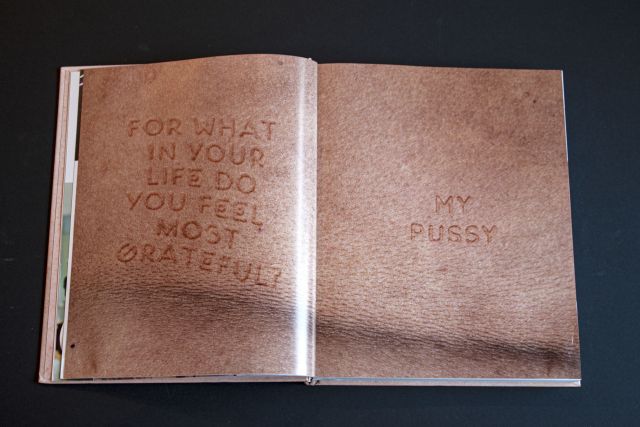 FOR WHAT
IN YOUR
LIFE DO
YOU FEEL
MOST
GRATEFUL?
MY
PUSSY